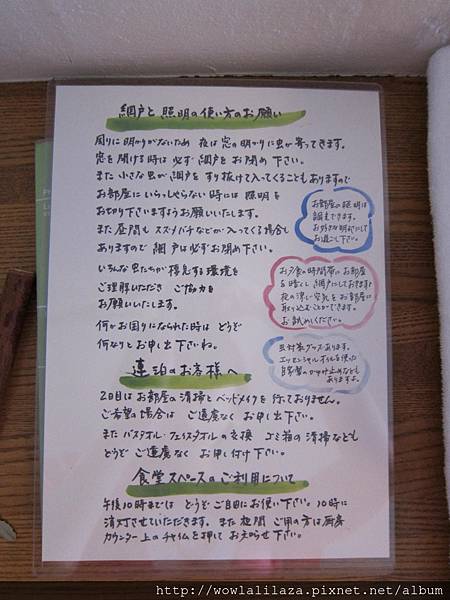 網戸と照明の使い方のお願い
周りに明かりがないため 夜は窓の明かりに虫が寄ってきます。
窓を開ける時は必ず網戸をお閉め下さい。
また小さな虫が網戸をすり抜けて入ってくることもありますので
お部屋にいらっしゃらない時には照明を
お切り下さいますようお願いいたします。
また昼間もスズメバチなどが入ってくる場合も
ありますので網戸は必ずお閉め下さい。
いろんな虫たちが棲息する環境を
ご理解いただき ご協力を
お願いいたします。
何かお困りになられた時は どうぞ
何なりとお申し出下さいね。
お部屋の照明は
調光できます。
お好きな明るさにして
お過ごし下さい。
お夕食の時間帯にお部屋
を暗くし網戸にしておきますと
夜の涼しい空気をお部屋に
取り込むことができます。
お試しください。
虫対策グッズあります。
エッセンシャルオイルを使った
自家製のかゆみ止めなども
ありますよ。
連泊のお客様へ
2日目はお部屋の清掃とベッドメイクを行っておりません。
ご希望の場合は ご遠慮なくお申し出下さい。
また バスタオル・フェイスタオルの交換 ゴミ箱の清掃なども
どうぞ ご遠慮なく お申し付け下さい。
食堂スペースのご利用について
午後10時までは どうぞご自由にお使い下さい。10時に
消灯させていただきます。また夜間 ご用の方は厨房
カウンター上のチャイムを押してお知らせ下さい。
http://wowlalilaza.pixnet.net/album